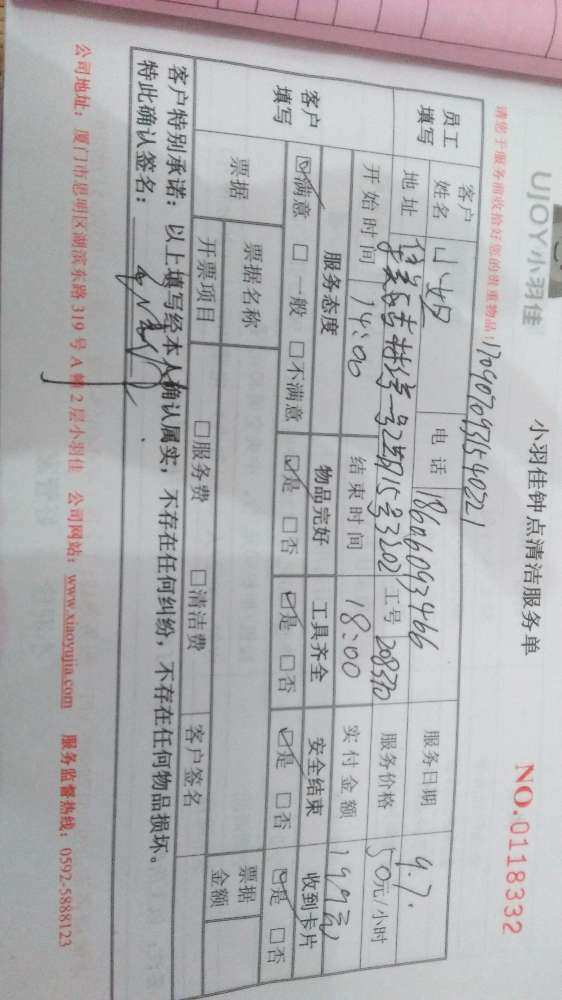 UJOY小羽佳
小羽佳钟点清洁服务单
NO.0118332
请您于服务前收拾好您的贵重物品!
员工填写
客户姓名
电话 18606093466
服务日期 4.7.
地址
工号 208370
服务价格 50元/小时
开始时间 14:00
结束时间 18:00
实付金额
客户填写
服务态度 物品完好 工具齐全 安全结束 收到卡片
☑满意 □一般 □不满意 ☑是 □否 ☑是 □否 ☑是 □否 ☑是 □否
票据
票据名称
票据金额
开票项目 □服务费 □清洁费 客户签名
客户特别承诺:以上填写经本人确认属实,不存在任何纠纷,不存在任何物品损坏。
特此确认签名:
公司地址:厦门市思明区湖滨东路 319 号 A 幢 2 层小羽佳 公司网站:www.xiaoyujia.com 服务监督热线:0592-5888123